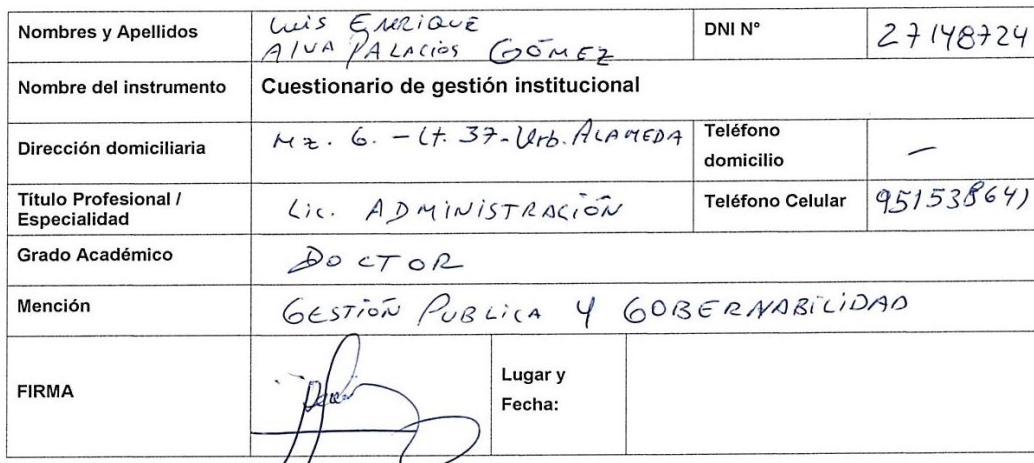 Nombres y Apellidos
Luis ENRIQUE
ALVA PALACIOS GÓMEZ
DNI N°
27148724
Nombre del instrumento
Cuestionario de gestión institucional
Dirección domiciliaria
Mz. G. - Lt. 37- Urb. ALAMEDA
Teléfono
domicilio
—
Título Profesional /
Especialidad
Lic. ADMINISTRACIÓN
Teléfono Celular
951538641
Grado Académico
DOCTOR
Mención
GESTIÓN PUBLICA Y GOBERNABILIDAD
FIRMA
Lugar y
Fecha: